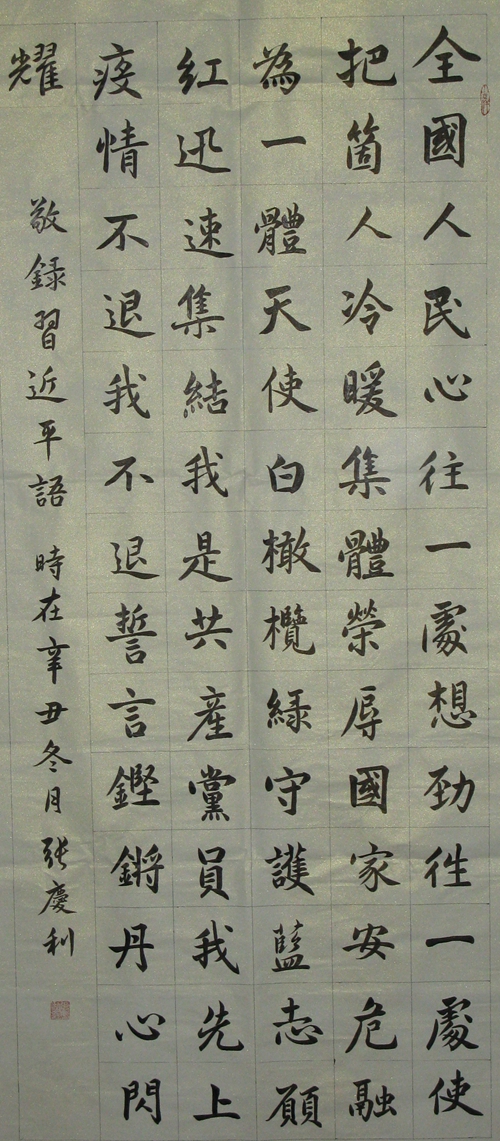 全國人民心往一處想勁往一處使
把箇人冷暖集體榮辱國家安危融
為一體天使白橄欖綠守護藍志願
紅迅速集結我是共產黨員我先上
疫情不退我不退誓言鏗鏘丹心閃
耀
敬録習近平語 時在辛丑冬月 張慶利